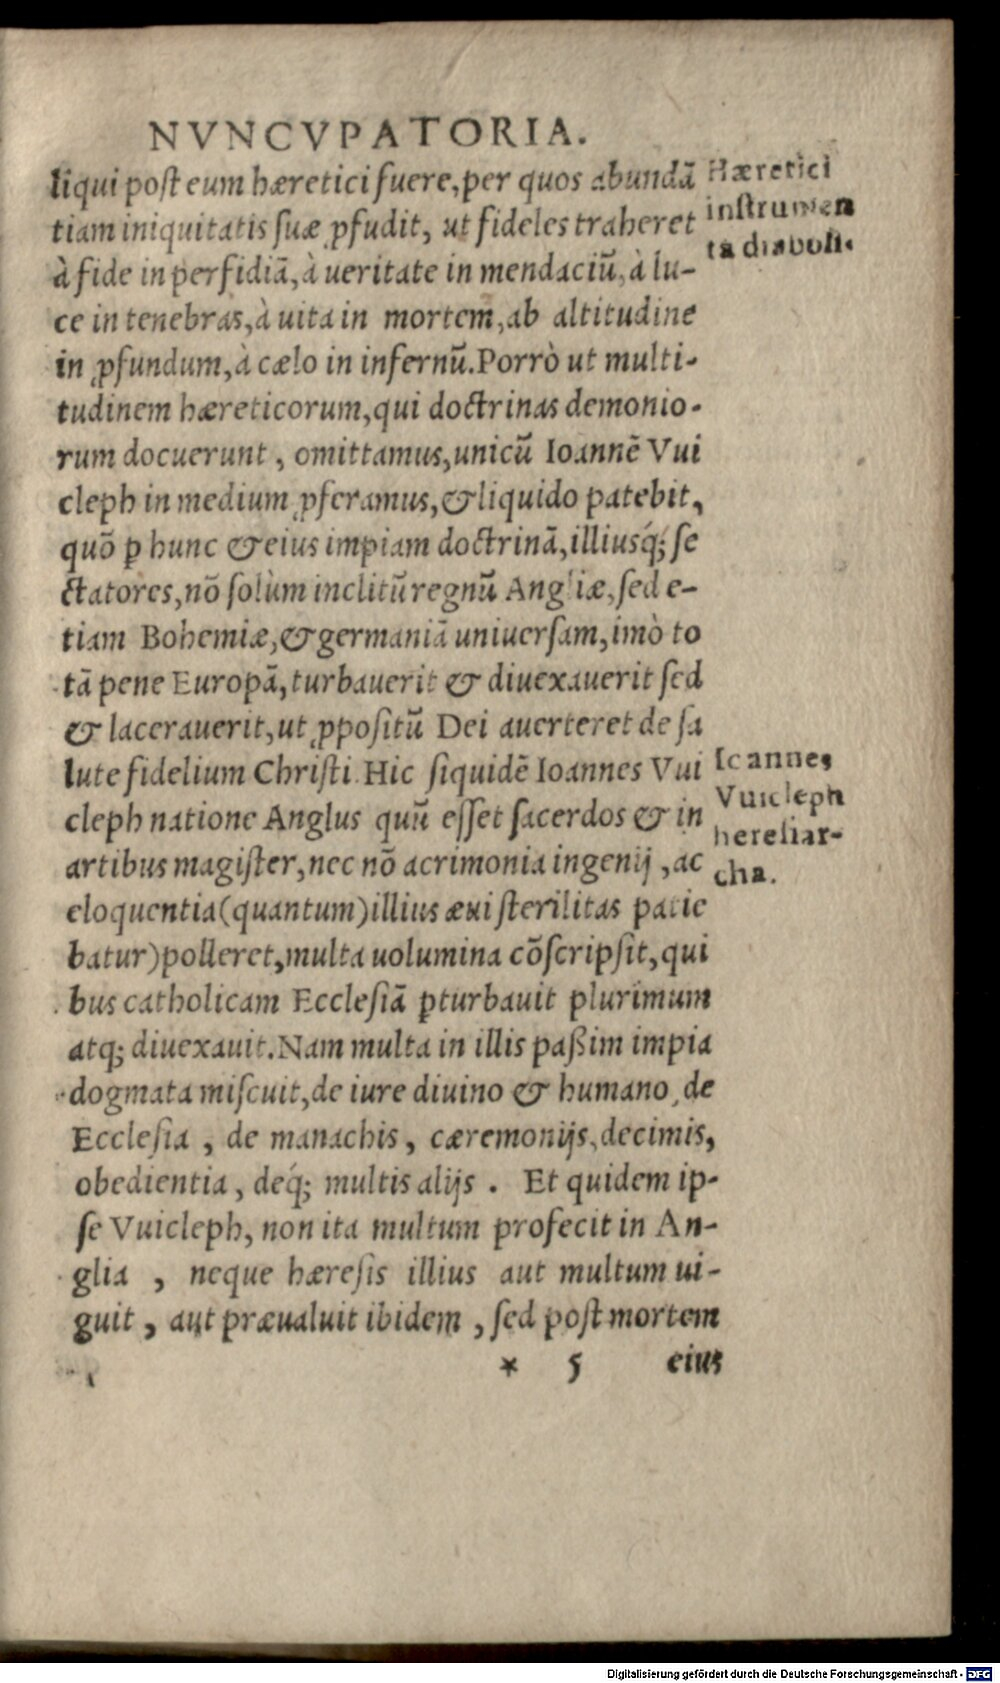 NVNCVPATORIA.
liqui post eum hæretici fuere, per quos abundā
tiam iniquitatis suæ ꝓfudit, ut fideles traheret
à fide in perfidiā, à ueritate in mendaciū, à lu-
ce in tenebras, à uita in mortem, ab altitudine
in ꝓfundum, à cælo in infernū. Porrò ut multi-
tudinem hæreticorum, qui doctrinas demonio-
rum docuerunt, omittamus, unicū Ioannē Vui
cleph in medium ꝓferamus, & liquido patebit,
quō ꝑ hunc & eius impiam doctrinā, illiusq́; se
ctatores, nō solùm inclitū regnū Angliæ, sed e-
tiam Bohemiæ, & germaniā uniuersam, imò to
tā pene Europā, turbauerit & diuexauerit sed
& lacerauerit, ut ꝓpositū Dei auerteret de sa
lute fidelium Christi. Hic siquidē Ioannes Vui
cleph natione Anglus quū esset sacerdos & in
artibus magister, nec nō acrimonia ingenij, ac
eloquentia (quantum) illius æui sterilitas patie
batur) polleret, multa uolumina cōscripsit, qui
bus catholicam Ecclesiā ꝑturbauit plurimum
atq; diuexauit. Nam multa in illis paßim impia
dogmata miscuit, de iure diuino & humano, de
Ecclesia, de manachis, cæremonijs, decimis,
obedientia, deq́; multis alijs. Et quidem ip-
se Vuicleph, non ita multum profecit in An-
glia, neque hæresis illius aut multum ui-
guit, aut præualuit ibidem, sed post mortem
* 5 eius
Hæretici
instrumen
ta diaboli.
Ioannes
Vuicleph
heresiar-
cha.
Digitalisierung gefördert durch die Deutsche Forschungsgemeinschaft - DFG